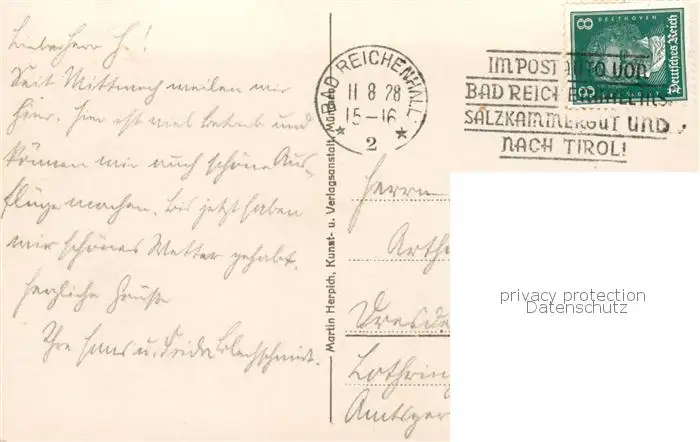 Lieber Herr H!
Seit Mittwoch weilen wir
hier. Hier ist viel Betrieb und
können wir auch schöne Aus-
flüge machen. Bis jetzt haben
wir schönes Wetter gehabt.
Herzliche Grüße
Ihre Hans u. Frida Blechschmidt.
Martin Herpich, Kunst- u. Verlagsanstalt, München
BAD REICHENHALL
11 8 28
15-16
2
8 BEETHOVEN
Deutsches Reich
IM POSTAUTO VON
BAD REICHENHALL INS
SALZKAMMERGUT UND
NACH TIROL!
Herrn
Arthu
Dresde
Lothring
Amtsger
privacy protection
Datenschutz